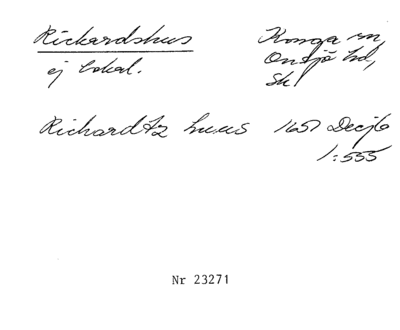 Rickardshus
ej lokal.
Konga sn,
Onsjö hd,
Sk
Richardtz huus 1651 Decjb
1:555
Nr 23271